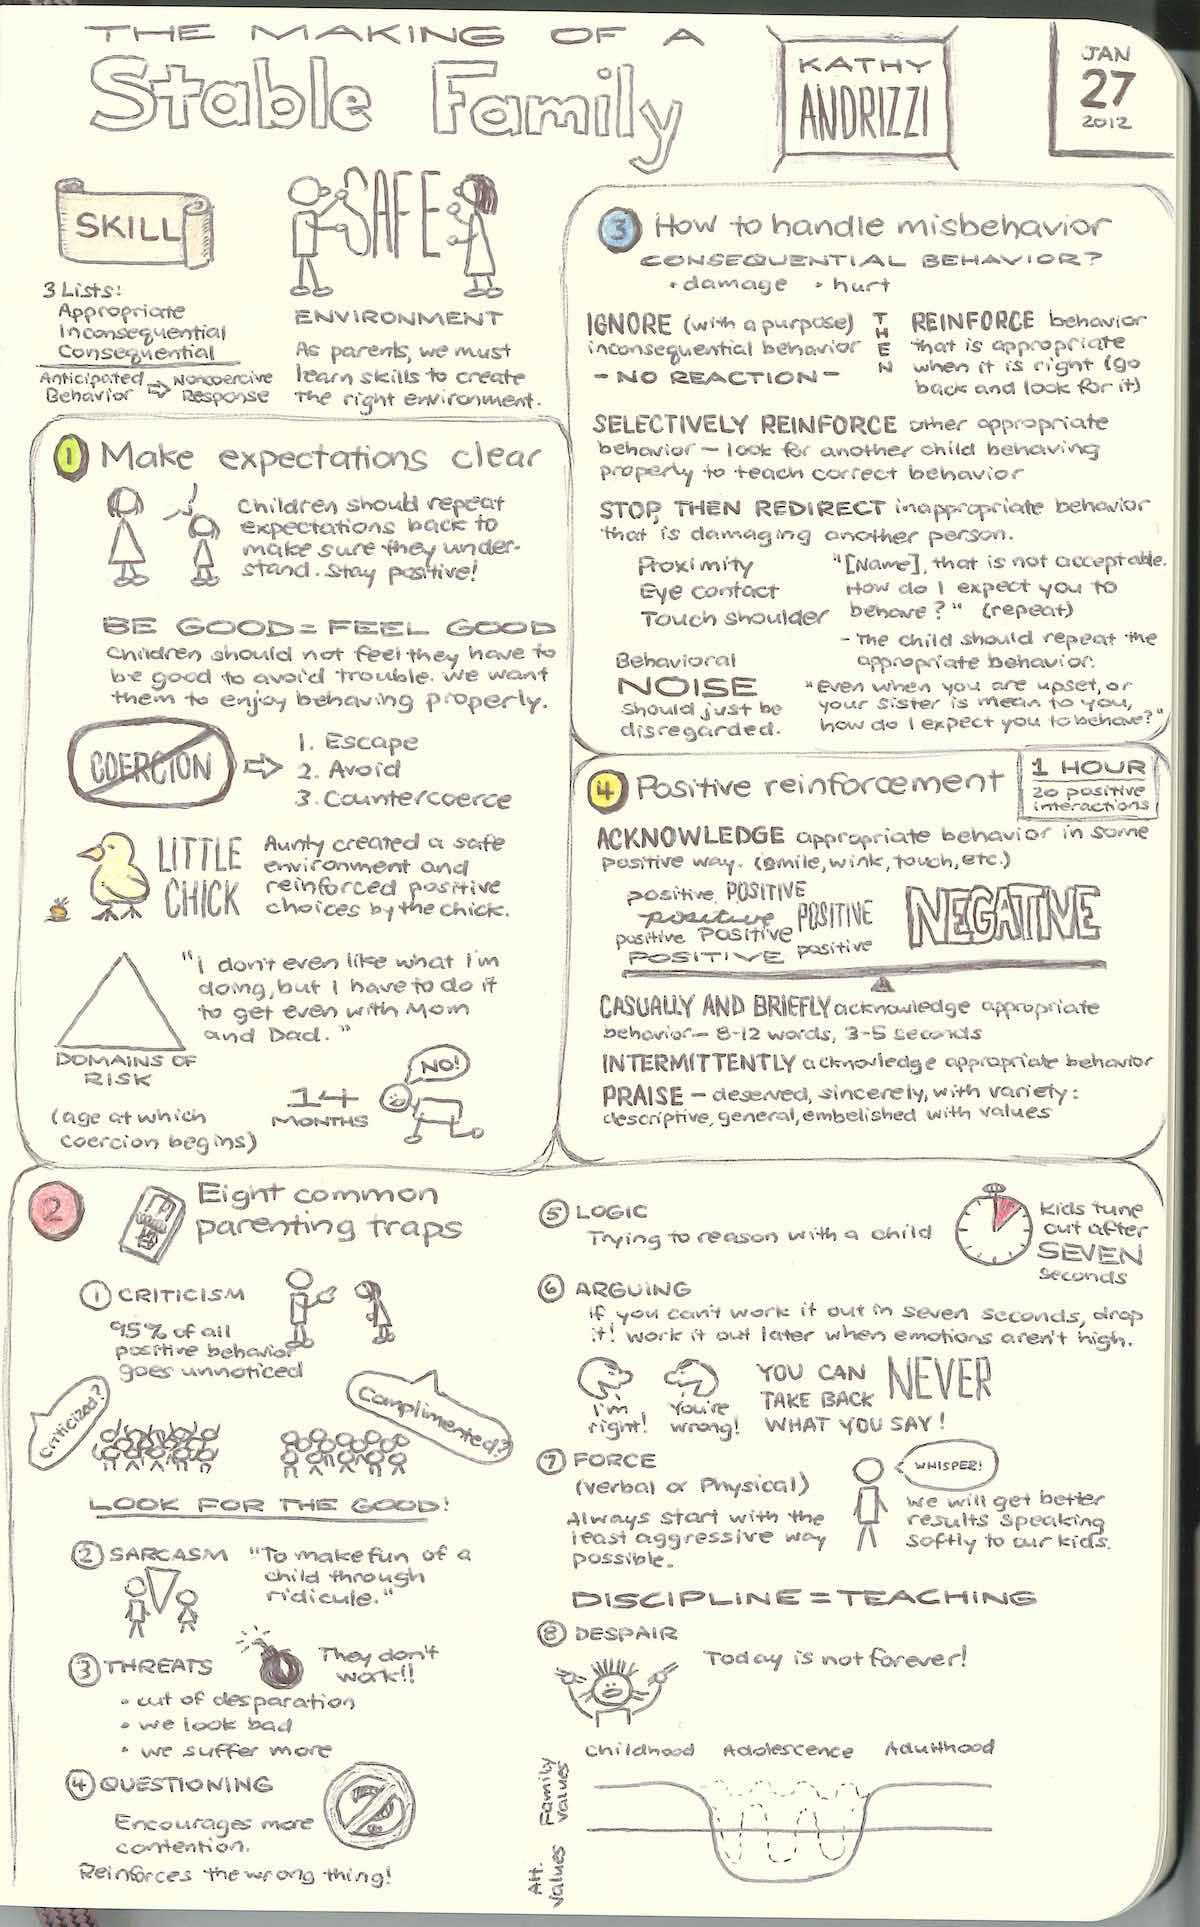 THE MAKING OF A
Stable Family
KATHY
ANDRIZZI
JAN
27
2012
SKILL
3 Lists:
Appropriate
Inconsequential
Consequential
Anticipated Behavior ⇨ Noncoercive Response
SAFE
ENVIRONMENT
As parents, we must
learn skills to create
the right environment.
1 Make expectations clear
Children should repeat
expectations back to
make sure they under-
stand. Stay positive!
BE GOOD = FEEL GOOD
Children should not feel they have to
be good to avoid trouble. We want
them to enjoy behaving properly.
COERCION ⇨
1. Escape
2. Avoid
3. Countercoerce
LITTLE
CHICK
Aunty created a safe
environment and
reinforced positive
choices by the chick.
"I don't even like what I'm
doing, but I have to do it
to get even with Mom
and Dad."
DOMAINS OF
RISK
(age at which
coercion begins)
14
MONTHS
NO!
3 How to handle misbehavior
CONSEQUENTIAL BEHAVIOR?
• damage • hurt
IGNORE (with a purpose)
inconsequential behavior
- NO REACTION -
THEN
REINFORCE behavior
that is appropriate
when it is right (go
back and look for it)
SELECTIVELY REINFORCE other appropriate
behavior - look for another child behaving
properly to teach correct behavior
STOP, THEN REDIRECT inappropriate behavior
that is damaging another person.
Proximity
Eye contact
Touch shoulder
"[Name], that is not acceptable.
How do I expect you to
behave?" (repeat)
- The child should repeat the
appropriate behavior.
Behavioral
NOISE
should just be
disregarded.
"Even when you are upset, or
your sister is mean to you,
how do I expect you to behave?"
4 Positive reinforcement
1 HOUR
20 positive
interactions
ACKNOWLEDGE appropriate behavior in some
positive way. (smile, wink, touch, etc.)
positive POSITIVE
positive POSITIVE
positive positive positive
POSITIVE
NEGATIVE
CASUALLY AND BRIEFLY acknowledge appropriate
behavior - 8-12 words, 3-5 seconds
INTERMITTENTLY acknowledge appropriate behavior
PRAISE - deserved, sincerely, with variety:
descriptive, general, embelished with values
2 Eight common
parenting traps
1 CRITICISM
95% of all
positive behavior
goes unnoticed
Criticized?
Complimented?
LOOK FOR THE GOOD!
2 SARCASM
"To make fun of a
child through
ridicule."
3 THREATS
They don't
work!!
• out of desparation
• we look bad
• we suffer more
4 QUESTIONING
Encourages more
contention.
Reinforces the wrong thing!
5 LOGIC
Trying to reason with a child
Kids tune
out after
SEVEN
seconds
6 ARGUING
If you can't work it out in seven seconds, drop
it! Work it out later when emotions aren't high.
I'm
right!
You're
wrong!
YOU CAN NEVER
TAKE BACK
WHAT YOU SAY!
7 FORCE
(Verbal or Physical)
Always start with the
least aggressive way
possible.
WHISPER!
We will get better
results speaking
softly to our kids.
DISCIPLINE = TEACHING
8 DESPAIR
Today is not forever!
Childhood Adolescence Adulthood
Family
Values
Alt.
Values